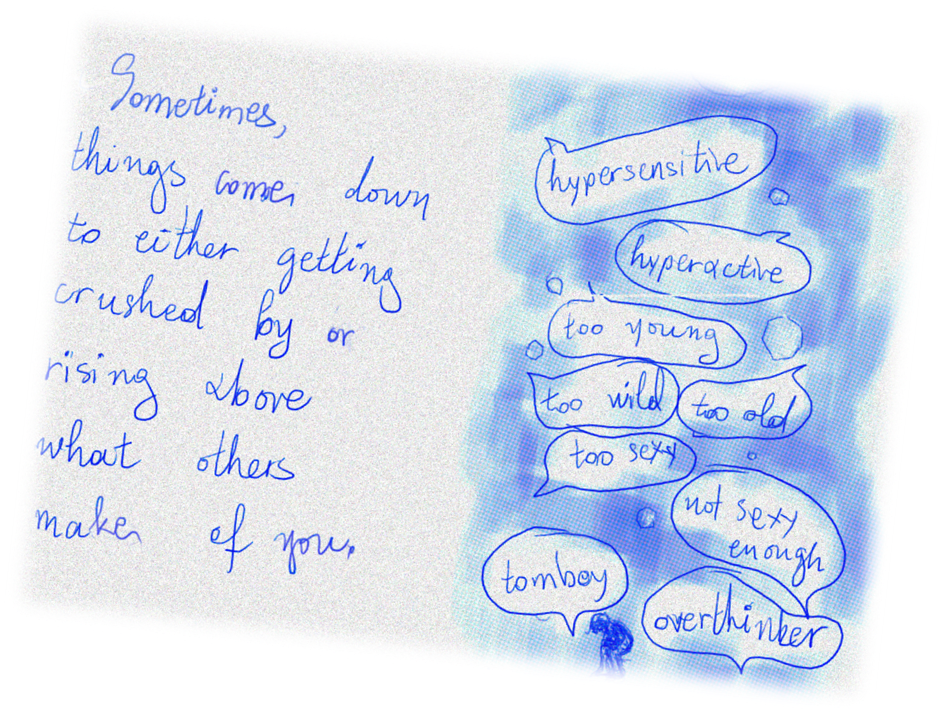 Sometimes,
things come down
to either getting
crushed by or
rising above
what others
make of you.
hypersensitive
hyperactive
too young
too wild
too old
too sexy
not sexy
enough
tomboy
overthinker